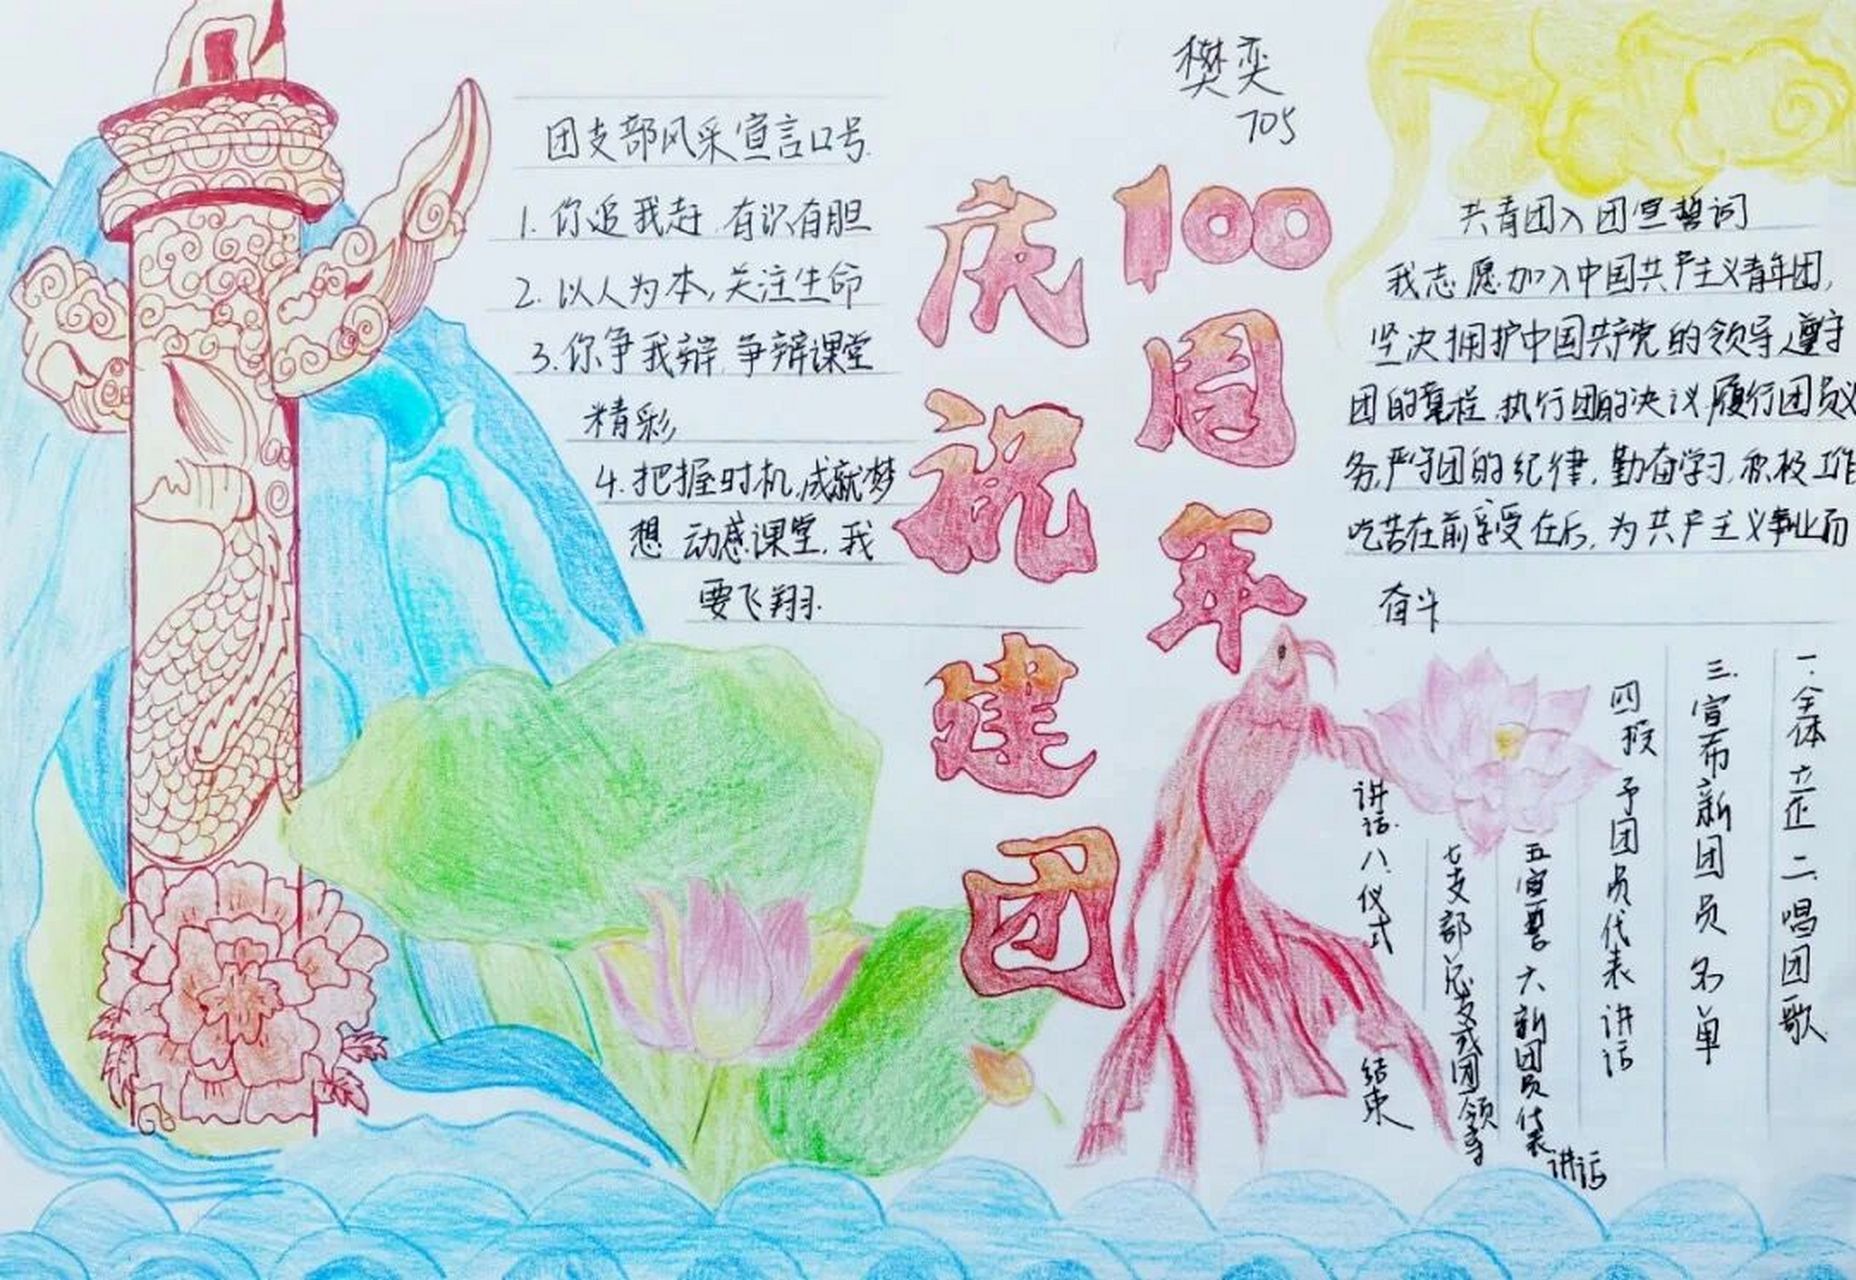 樊奕
705
庆祝建团
100周年
团支部风采宣言口号.
1. 你追我赶,有识有胆
2. 以人为本,关注生命
3. 你争我辩,争辩课堂
精彩
4. 把握时机,成就梦
想 动感课堂,我
要飞翔.
共青团入团宣誓词
我志愿加入中国共产主义青年团,
坚决拥护中国共产党的领导,遵守
团的章程,执行团的决议,履行团员义
务,严守团的纪律,勤奋学习,积极工作
吃苦在前,享受在后,为共产主义事业而
奋斗
一.全体立正 二.唱团歌
三.宣布新团员名单
四 授予团员代表讲话
五宣誓 六新团员代表讲话
七支部总支或团领导
讲话.八.仪式结束